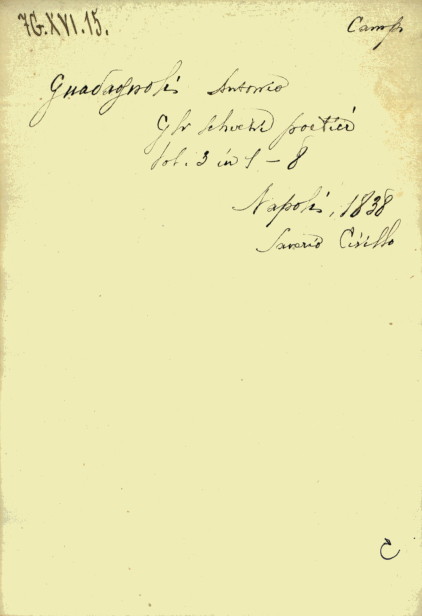 7G.XVI.15.
Guadagnoli Antonio
Gli scherzi poetici
Vol. 3 in 1 – 8
Napoli, 1838
Saverio Cirillo
C